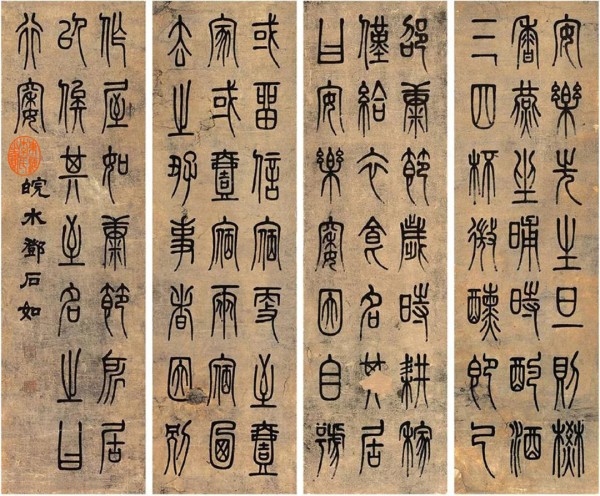 安樂先生旦則焚
香燕坐晡時酌酒
三四杯微醺即已
邵康節歲時耕稼
僅給衣食名其居
曰安樂窩因自號
或留信宿更至壹
家或壹宿兩宿
去之好事者因別
作屋如康節所居
以候其至名之曰
行窩
皖水鄧石如